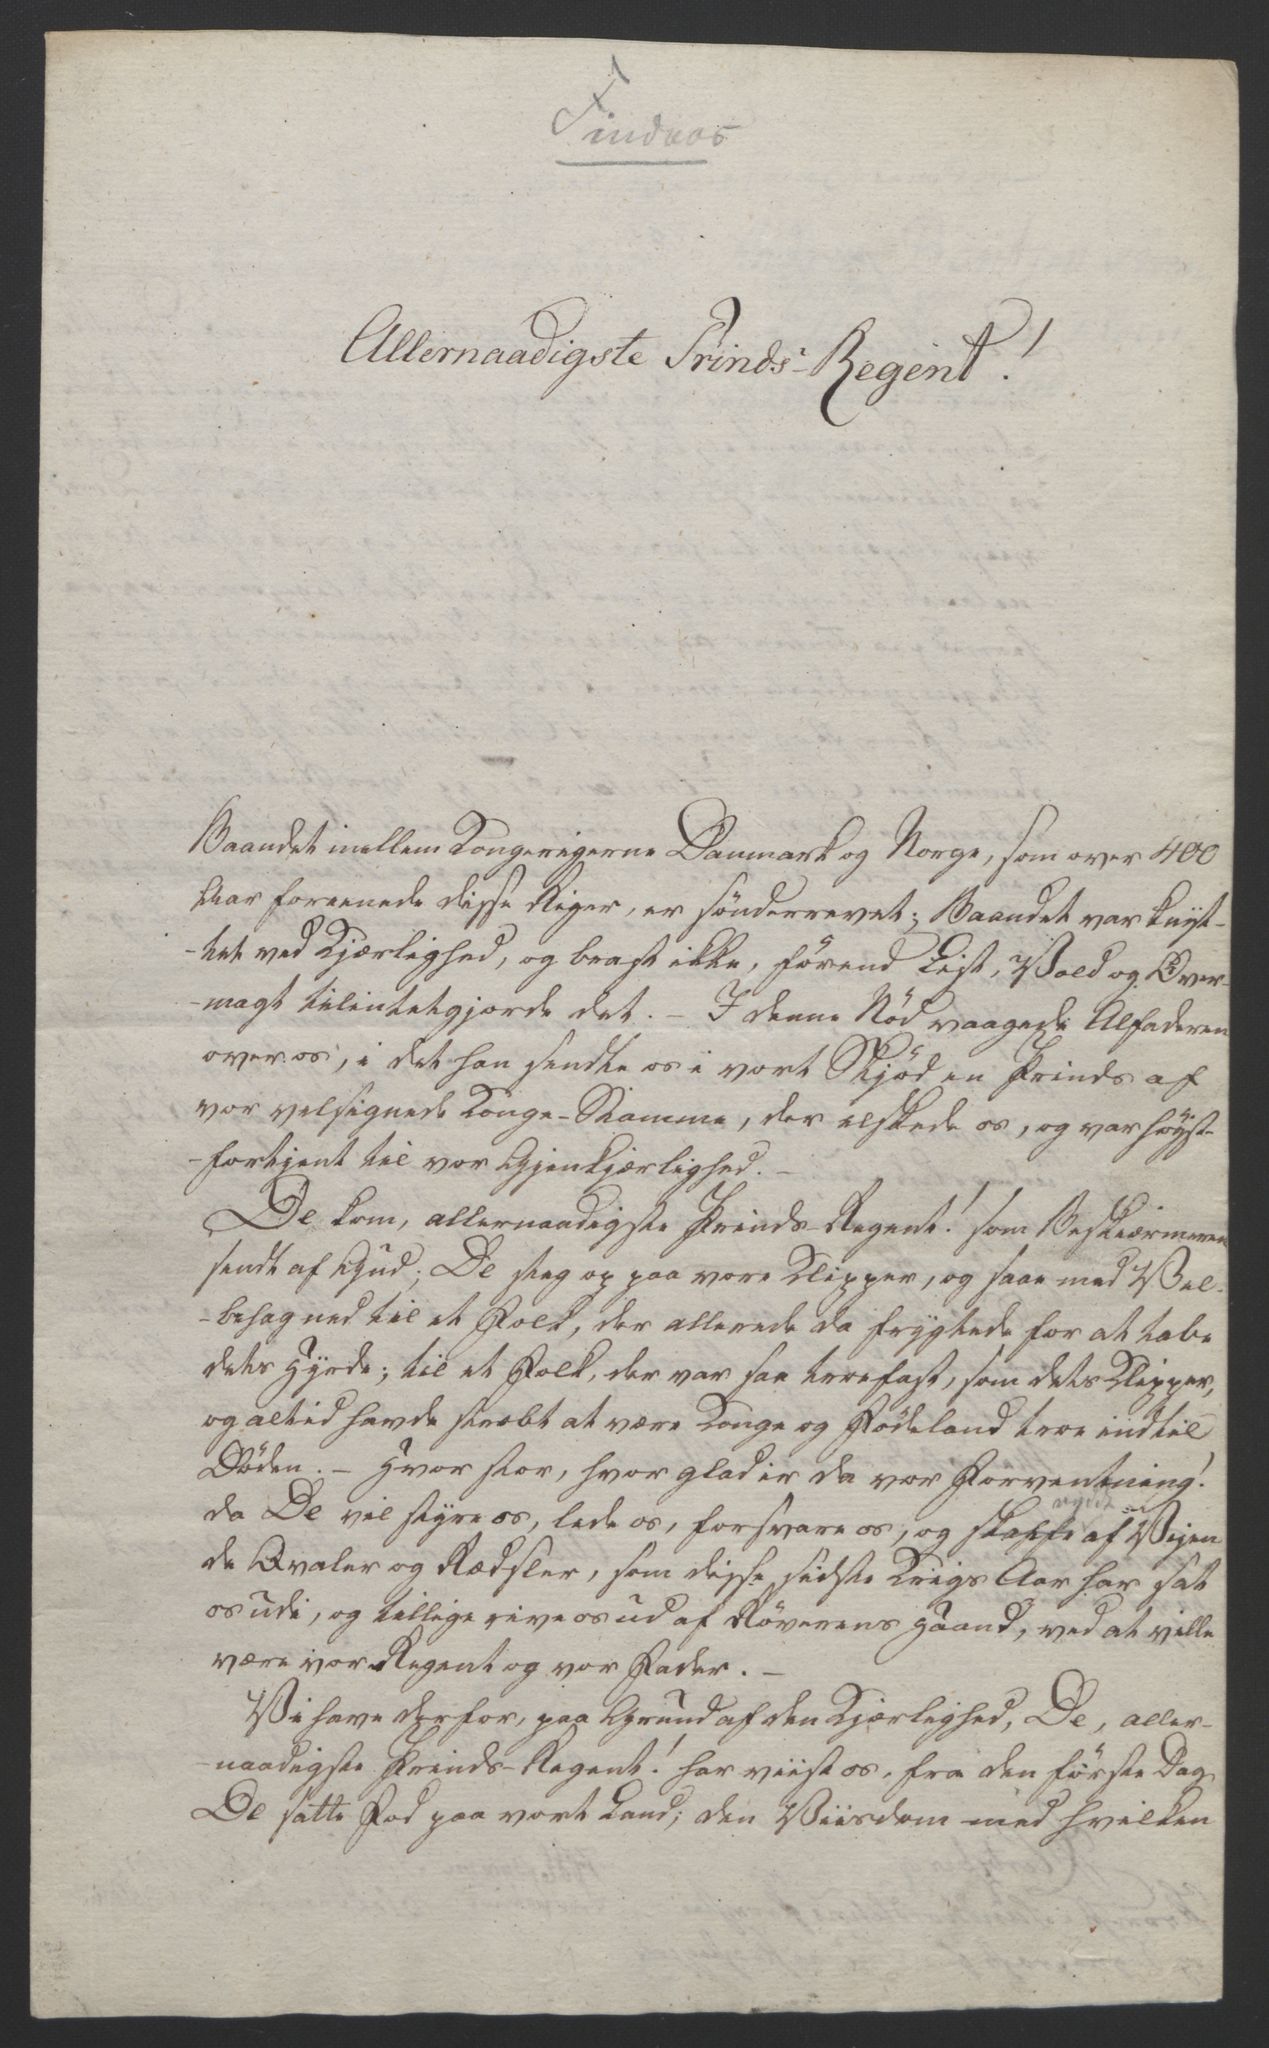 Findaas
Allernaadigste Prinds-Regent!
Baandet imellem Kongerigerne Danmark og Norge, som over 400
Aar foreenede disse Riger, er sönderrevet; Baandet var knyt-
-tet ved Kjærlighed, og brast ikke, förend List, Vold og Over-
-magt tilintetgjorde det. - I denne Nöd vaagede Alfaderen
over os, i det han sendte os i vort Skjöd en Prinds af
vor velsignede Konge-Stamme, der elskede os, og var höyst-
-fortjent til vor Gjenkjærlighed. -
De kom, allernaadigste Prinds-Regent! som Beskiærmeren
sendt af Gud; De steg op paa vore Klipper, og saae med Vel-
-behag ned til et Folk, der allerede da frygtede for at tabe
dets Hyrde; til et Folk, der var saa troefast, som dets Klipper,
og altid havde stræbt at være Konge og Födeland troe indtil
Döden. - Hvor stor, hvor glad er da vor Forventning!
da De vil styre os, lede os, forsvare os, og skaffe af Vejen
rydde
de Qvaler og Rædsler, som disse sidste Krigs Aar har sat
os udi, og tillige rive os ud af Röverens Haand, ved at ville
være vor Regent og vor Fader. -
Vi have derfor, paa Grund af den Kjærlighed, De, aller-
-naadigste Prinds-Regent! har viist os, fra den förste Dag
De satte Fod paa vort Land; den Viisdom med hvilken